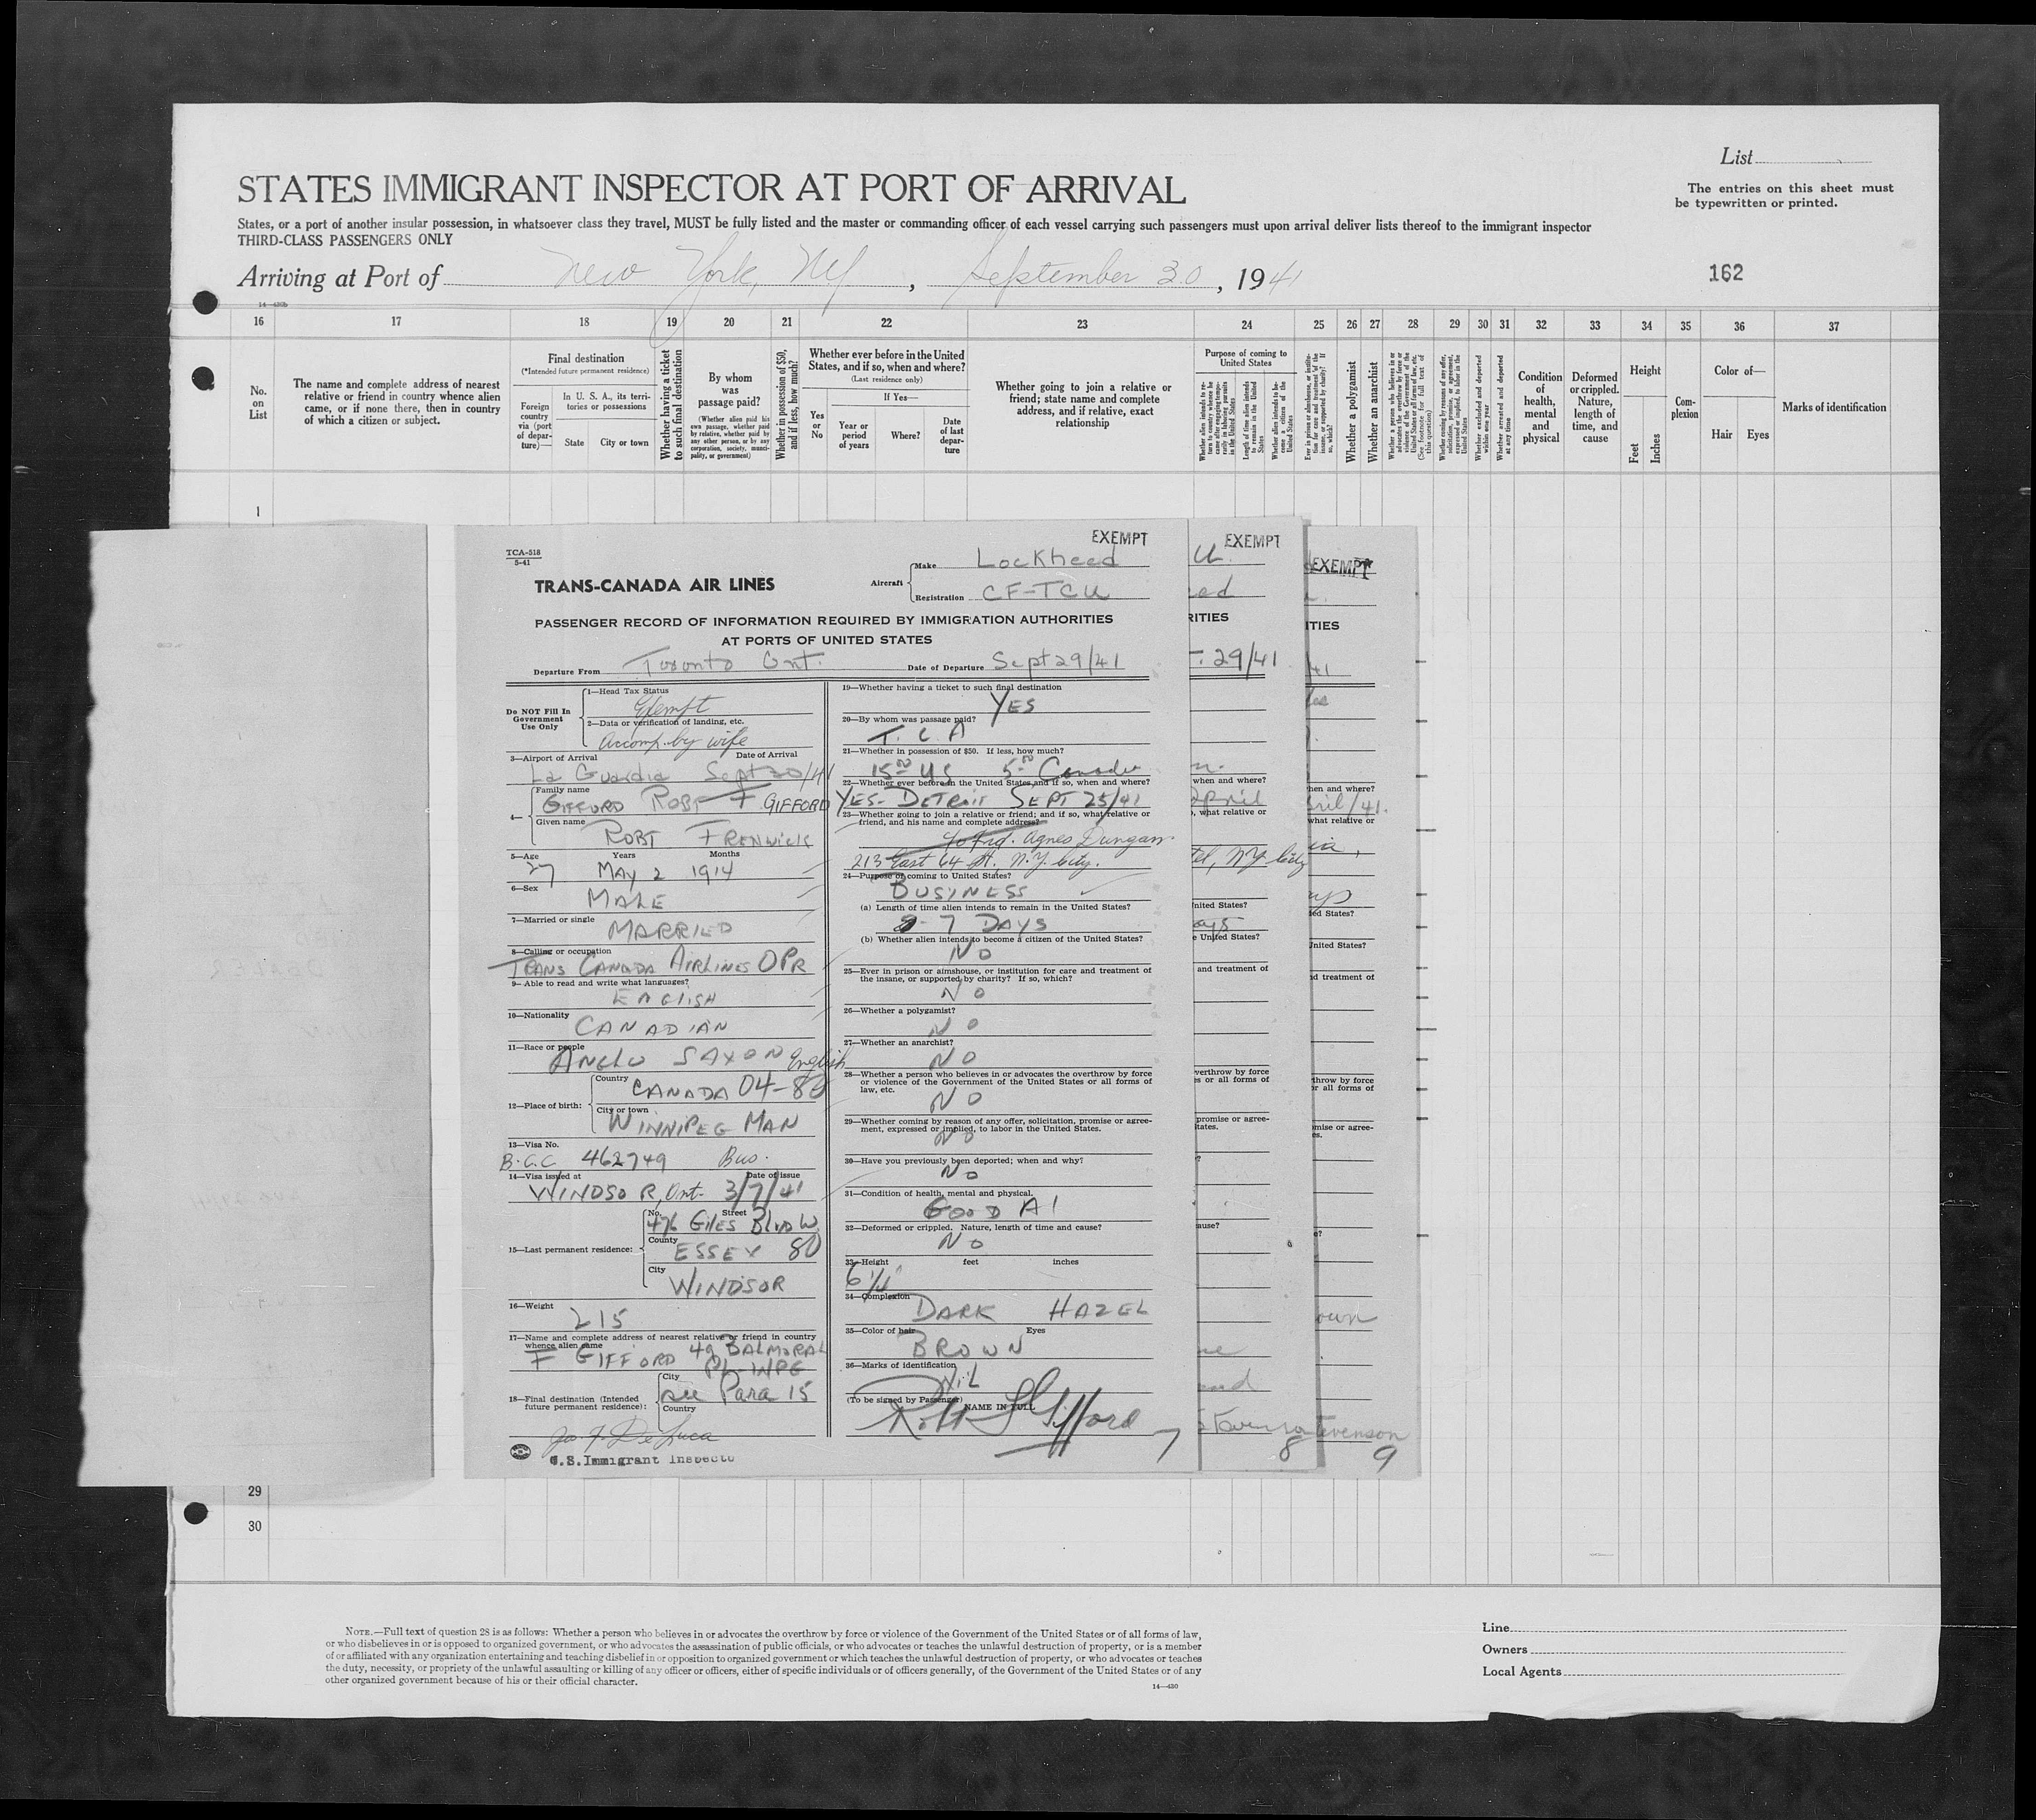 List
STATES IMMIGRANT INSPECTOR AT PORT OF ARRIVAL
The entries on this sheet must
be typewritten or printed.
States, or a port of another insular possession, in whatsoever class they travel, MUST be fully listed and the master or commanding officer of each vessel carrying such passengers must upon arrival deliver lists thereof to the immigrant inspector
THIRD-CLASS PASSENGERS ONLY
Arriving at Port of New York, NY, September 30, 1941
162
16 17 18 19 20 21 22 23 24 25 26 27 28 29 30 31 32 33 34 35 36 37
No. on List
The name and complete address of nearest
relative or friend in country whence alien
came, or if none there, then in country
of which a citizen or subject.
Final destination
(*Intended future permanent residence)
Foreign country via (port of departure)—
In U. S. A., its territories or possessions
State
City or town
Whether having a ticket to such final destination
By whom was passage paid?
(Whether alien paid his own passage, whether paid by relative, whether paid by any other person, or by any corporation, society, municipality, or government)
Whether in possession of $50, and if less, how much?
Whether ever before in the United
States, and if so, when and where?
(Last residence only)
Yes or No
If Yes—
Year or period of years
Where?
Date of last departure
Whether going to join a relative or
friend; state name and complete
address, and if relative, exact
relationship
Purpose of coming to United States
Whether a polygamist
Whether an anarchist
Condition of health, mental and physical
Deformed or crippled. Nature, length of time, and cause
Height
Feet
Inches
Complexion
Color of—
Hair
Eyes
Marks of identification
1
TCA-518
5-41
EXEMPT
TRANS-CANADA AIR LINES
Aircraft
Make Lockheed
Registration CF-TCU
PASSENGER RECORD OF INFORMATION REQUIRED BY IMMIGRATION AUTHORITIES
AT PORTS OF UNITED STATES
Departure From Toronto Ont.
Date of Departure Sept 29/41
Do NOT Fill In
Government
Use Only
1—Head Tax Status
Exempt
2—Data or verification of landing, etc.
Accomp. by wife
3—Airport of Arrival
Date of Arrival
La Guardia Sept 30/41
4—
Family name
GIFFORD ROBT F GIFFORD
Given name
ROBT FRENWICK
5—Age Years Months
27 MAY 2 1914
6—Sex
MALE
7—Married or single
MARRIED
8—Calling or occupation
TRANS CANADA AIRLINES OPR
9—Able to read and write what languages?
ENGLISH
10—Nationality
CANADIAN
11—Race or people
ANGLO SAXON English
12—Place of birth:
Country
CANADA 04-80
City or town
WINNIPEG MAN
13—Visa No.
B.C.C. 462749 Bus.
14—Visa issued at
Date of issue
WINDSOR, Ont. 3/7/41
15—Last permanent residence:
No. Street
476 GILES BLVD W.
County
ESSEX 80
City
WINDSOR
16—Weight
215
17—Name and complete address of nearest relative or friend in country
whence alien came
F GIFFORD 49 BALMORAL
PL-WNPG
18—Final destination (Intended
future permanent residence):
City
see Para 15
Country
Jos. F. DeLuca
U.S. Immigrant Inspecto
19—Whether having a ticket to such final destination
YES
20—By whom was passage paid?
T.C.A
21—Whether in possession of $50. If less, how much?
15.00 US 5.00 Canada
22—Whether ever before in the United States and if so, when and where?
YES-DETROIT SEPT 25/41
23—Whether going to join a relative or friend; and if so, what relative or
friend, and his name and complete address?
Agnes Dungan
213 East 64 St., N.Y. City.
24—Purpose of coming to United States?
BUSINESS
(a) Length of time alien intends to remain in the United States?
7 DAYS
(b) Whether alien intends to become a citizen of the United States?
NO
25—Ever in prison or almshouse, or institution for care and treatment of
the insane, or supported by charity? If so, which?
NO
26—Whether a polygamist?
NO
27—Whether an anarchist?
NO
28—Whether a person who believes in or advocates the overthrow by force
or violence of the Government of the United States or all forms of
law, etc.
NO
29—Whether coming by reason of any offer, solicitation, promise or agree-
ment, expressed or implied, to labor in the United States.
NO
30—Have you previously been deported; when and why?
NO
31—Condition of health, mental and physical.
GOOD A1
32—Deformed or crippled. Nature, length of time and cause?
NO
33—Height feet inches
6'1"
34—Complexion
DARK HAZEL
35—Color of hair Eyes
BROWN
36—Marks of identification
NIL
(To be signed by Passenger)
NAME IN FULL
Robt F Gifford
7
EXEMPT
RITIES
T. 29/41
when and where?
April
, what relative or
tel, NY City
nited States?
ays
e United States?
and treatment of
verthrow by force
s or all forms of
promise or agree-
tates.
?
ause?
8
EXEMPT
ITIES
41
hen and where?
ril/41.
what relative or
ed States?
United States?
d treatment of
throw by force
r all forms of
mise or agree-
es.
e?
own
tevenson
9
29
30
NOTE.—Full text of question 28 is as follows: Whether a person who believes in or advocates the overthrow by force or violence of the Government of the United States or of all forms of law,
or who disbelieves in or is opposed to organized government, or who advocates the assassination of public officials, or who advocates or teaches the unlawful destruction of property, or is a member
of or affiliated with any organization entertaining and teaching disbelief in or opposition to organized government or which teaches the unlawful destruction of property, or who advocates or teaches
the duty, necessity, or propriety of the unlawful assaulting or killing of any officer or officers, either of specific individuals or of officers generally, of the Government of the United States or of any
other organized government because of his or their official character.
14—430
Line
Owners
Local Agents